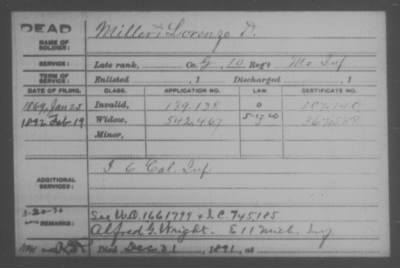 DEAD
NAME OF SOLDIER: Miller, Lorenzo D.
SERVICE: Late rank, Co. G, 10 Reg't Mo Inf
TERM OF SERVICE: Enlisted , 1 Discharged , 1
DATE OF FILING. CLASS. APPLICATION NO. LAW. CERTIFICATE NO.
1869, Jan 25 Invalid, 139.138 0 107.140
1892 Feb 19 Widow, 542.467 367.588
Minor,
ADDITIONAL SERVICES: I 6 Cal. Inf
REMARKS: See W.O. 1661799 + I.C. 745185
Alfred G. Wright. E 11 Mich. Inf
Died Dec 21, 1891, at